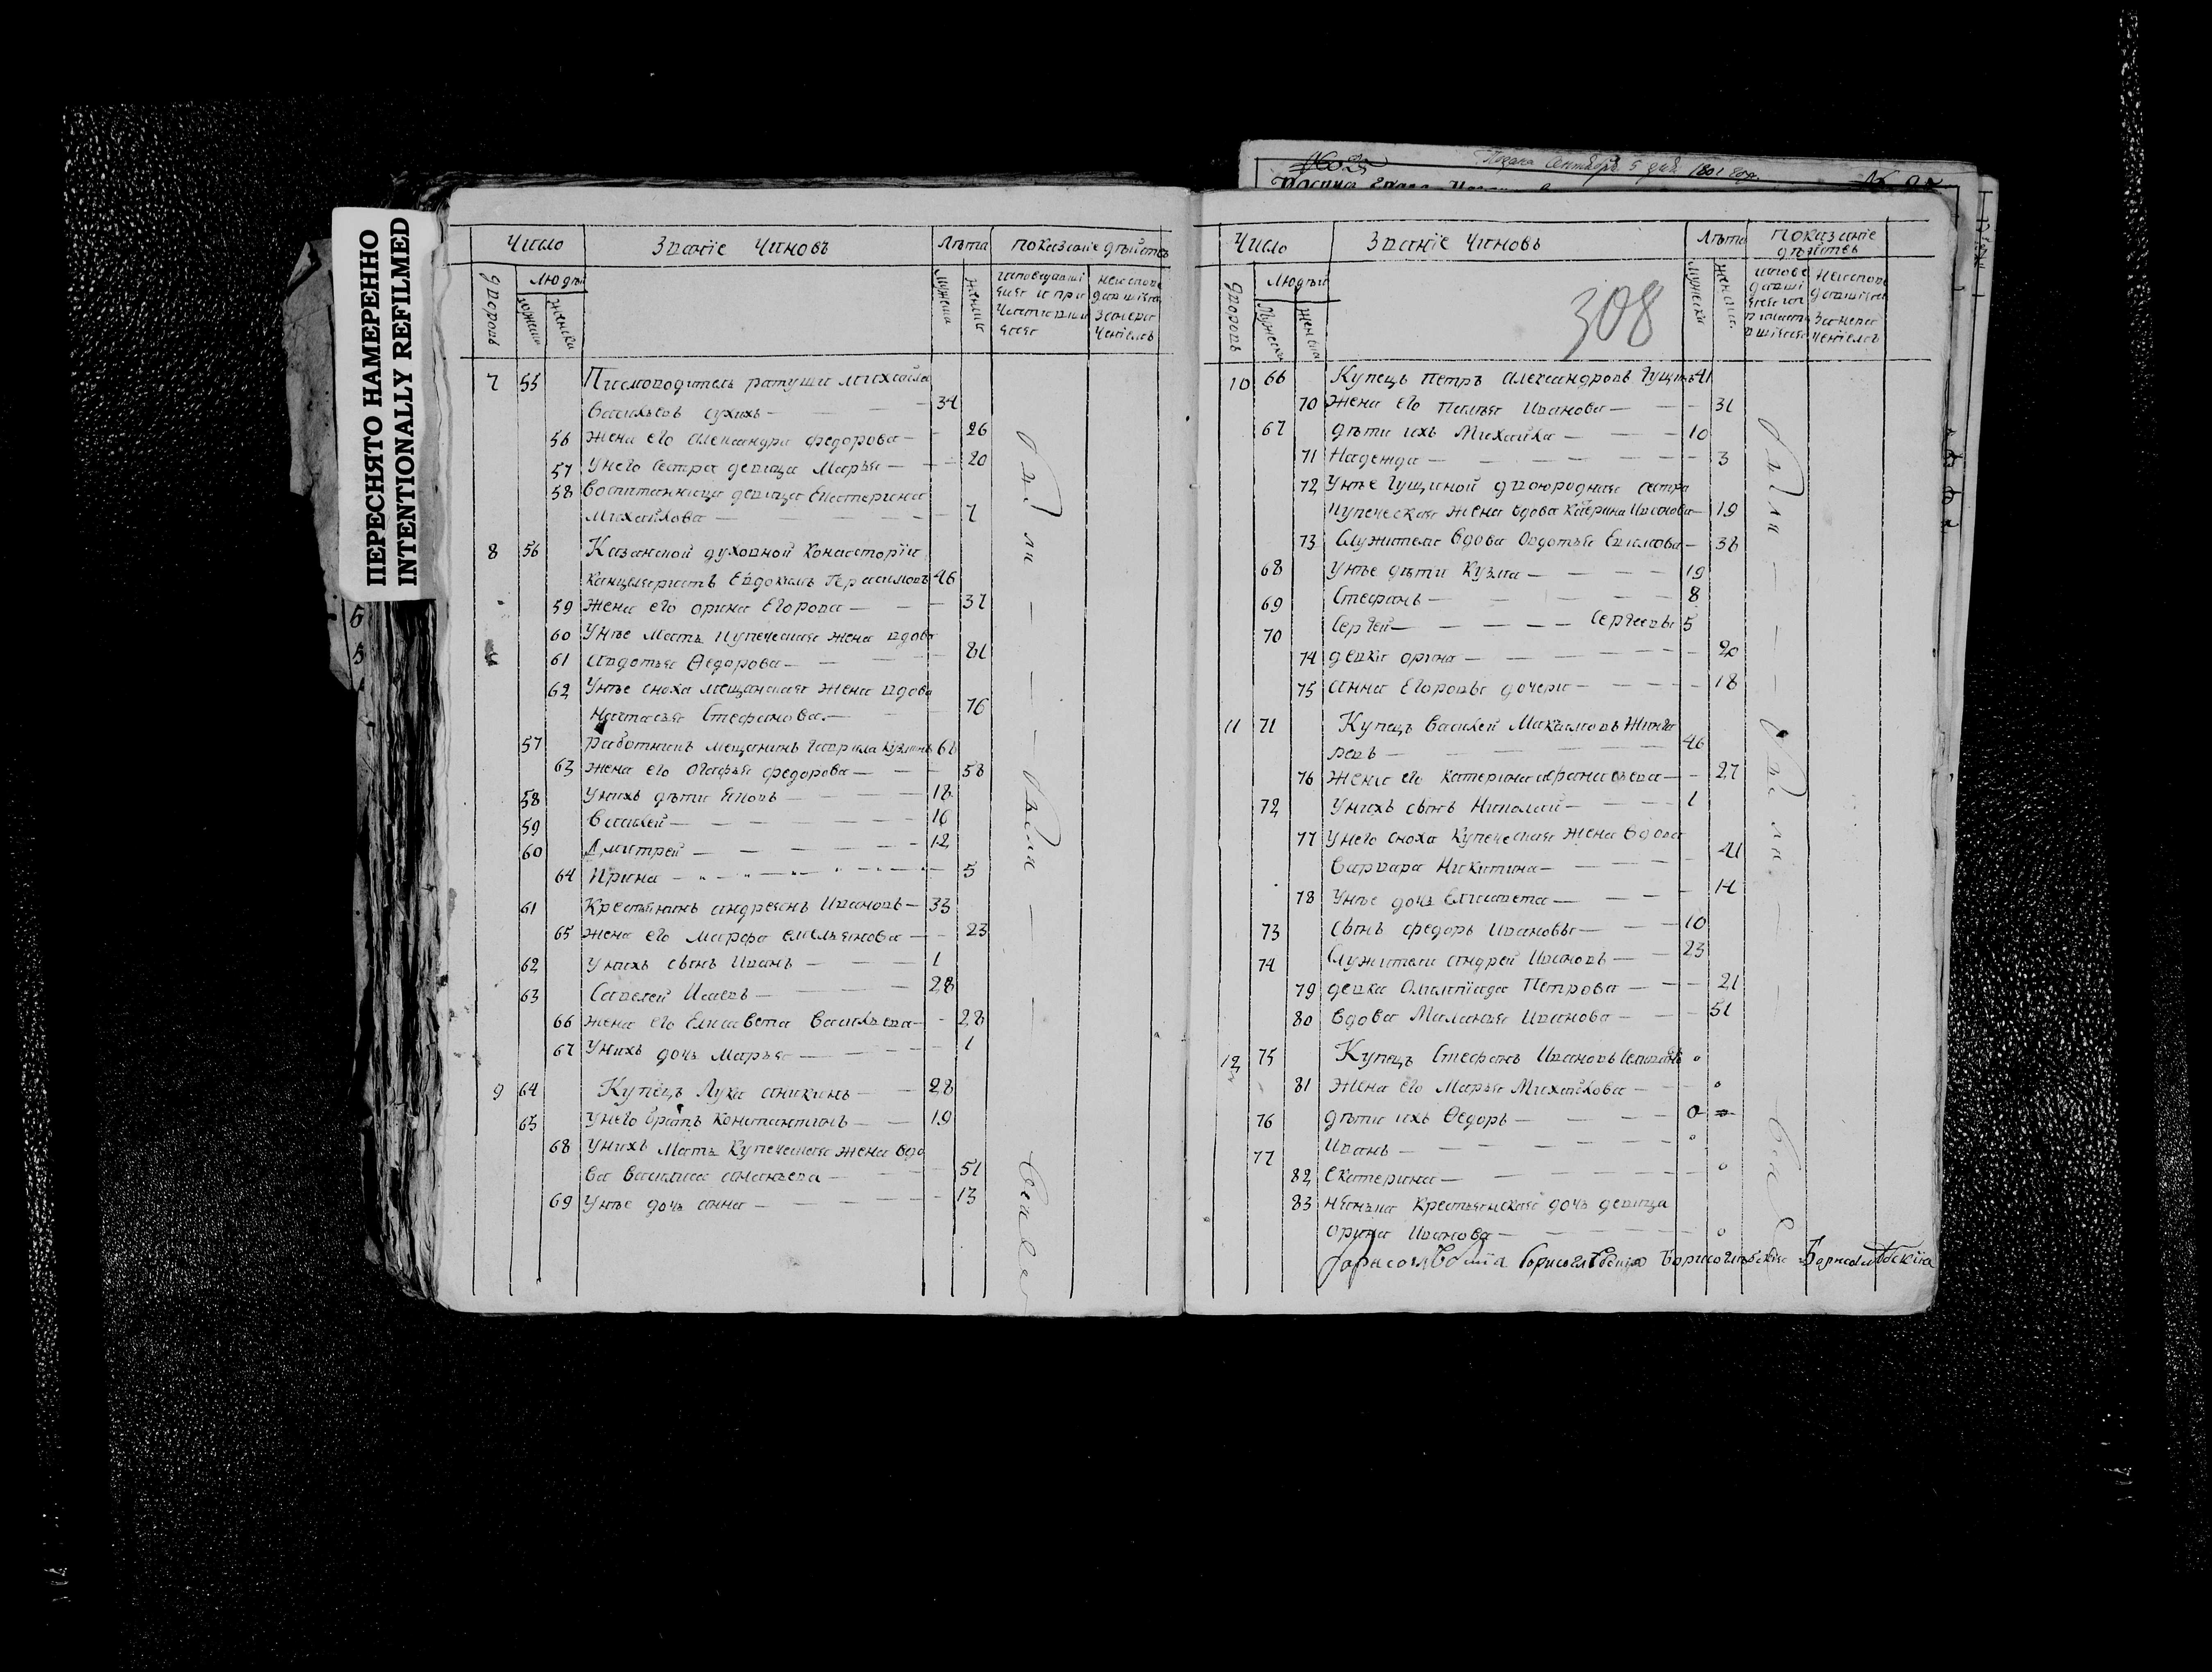 ПЕРЕСНЯТО НАМЕРЕННО
INTENTIONALLY REFILMED
Число Званїе Чиновъ Лѣта показанїе дѣйствъ
дворовъ людѣй мужеска женска мужеска женска
7 55 Писмоводитель ратуши михайла
Васильевъ сухихъ — 34
56 жена его александра федорова — 26
57 У него сестра девица Марья — 20
58 Воспитанница девица Екатерина
михайлова — 7
8 56 Казанской духовной Консисторїи
канцыляристъ Евдокимъ Герасимовъ 46
59 жена его орина Егорова — 37
60 У нѣе мать купеческая жена вдова
61 авдотья Ѳедорова — 81
62 У нѣе сноха мещанская жена вдова
Настасья Стефанова — 76
57 Работникъ мещанинъ Гаврила Кузминъ 68
63 жена его Огафья федорова — 58
58 У нихъ дѣти Яковъ — 18
59 Василей — 16
60 Дмитрей — 12
64 Ирина — 5
61 Крестьянинъ андреянъ Ивановъ — 33
65 жена его Марфа емельянова — 23
62 У нихъ сынъ Иванъ — 1
63 Савелей Исаевъ — 28
66 жена его Елисавета Васильева — 28
67 У нихъ дочь Марья — 1
9 64 Купецъ Лука аникинъ — 28
65 У него братъ Константинъ — 19
68 У нихъ мать Купеческая жена вдо
ва Василиса ананьева — 51
69 У нѣе дочь анна — 13
были — — — были — — Были
Число Званїе Чиновъ Лѣта показанїе
дѣйствъ
дворовъ людѣй мужеска женска мужеска женска
308
10 66 Купецъ Петръ александровъ Гущинъ 41
70 жена его Пелагея Иванова — 31
67 дѣти ихъ Михайла — 10
71 Надежда — 3
72 У нѣе Гущиной двоюродная сестра
купеческая жена вдова Катерина Иванова — 19
73 Служители Вдова Овдотья — 38
68 У нѣе дѣти Кузма — 19
69 Стефанъ — 8
70 Сергей — Сергеевы 5
74 девки орина — 20
75 анна Егоровы дочери — 18
11 71 Купецъ Василей Максимовъ Жинга
ревъ — 46
76 жена его Катерина афанасьева — 27
72 У нихъ сынъ Николай — 1
77 У него сноха Купеческая жена Вдова
Варвара Никитина — 41
78 У нѣе дочь Елисавета — 14
73 сынъ федоръ Ивановы — 10
74 Служители андрей Ивановъ — 23
79 девка Олимпїада Петрова — 21
80 Вдова Маланья Иванова — 51
12 75 Купецъ Стефанъ Ивановъ
81 жена его Марья Михайлова —
76 дѣти ихъ Ѳедоръ — 0
77 Иванъ —
82 Екатерина —
83 нянька крестьянская дочь девица
орина Иванова —
были — — — были — —
Подана Сентября 5 дня 1801 года